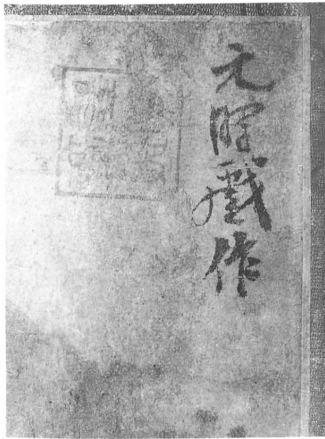 元暉戲作